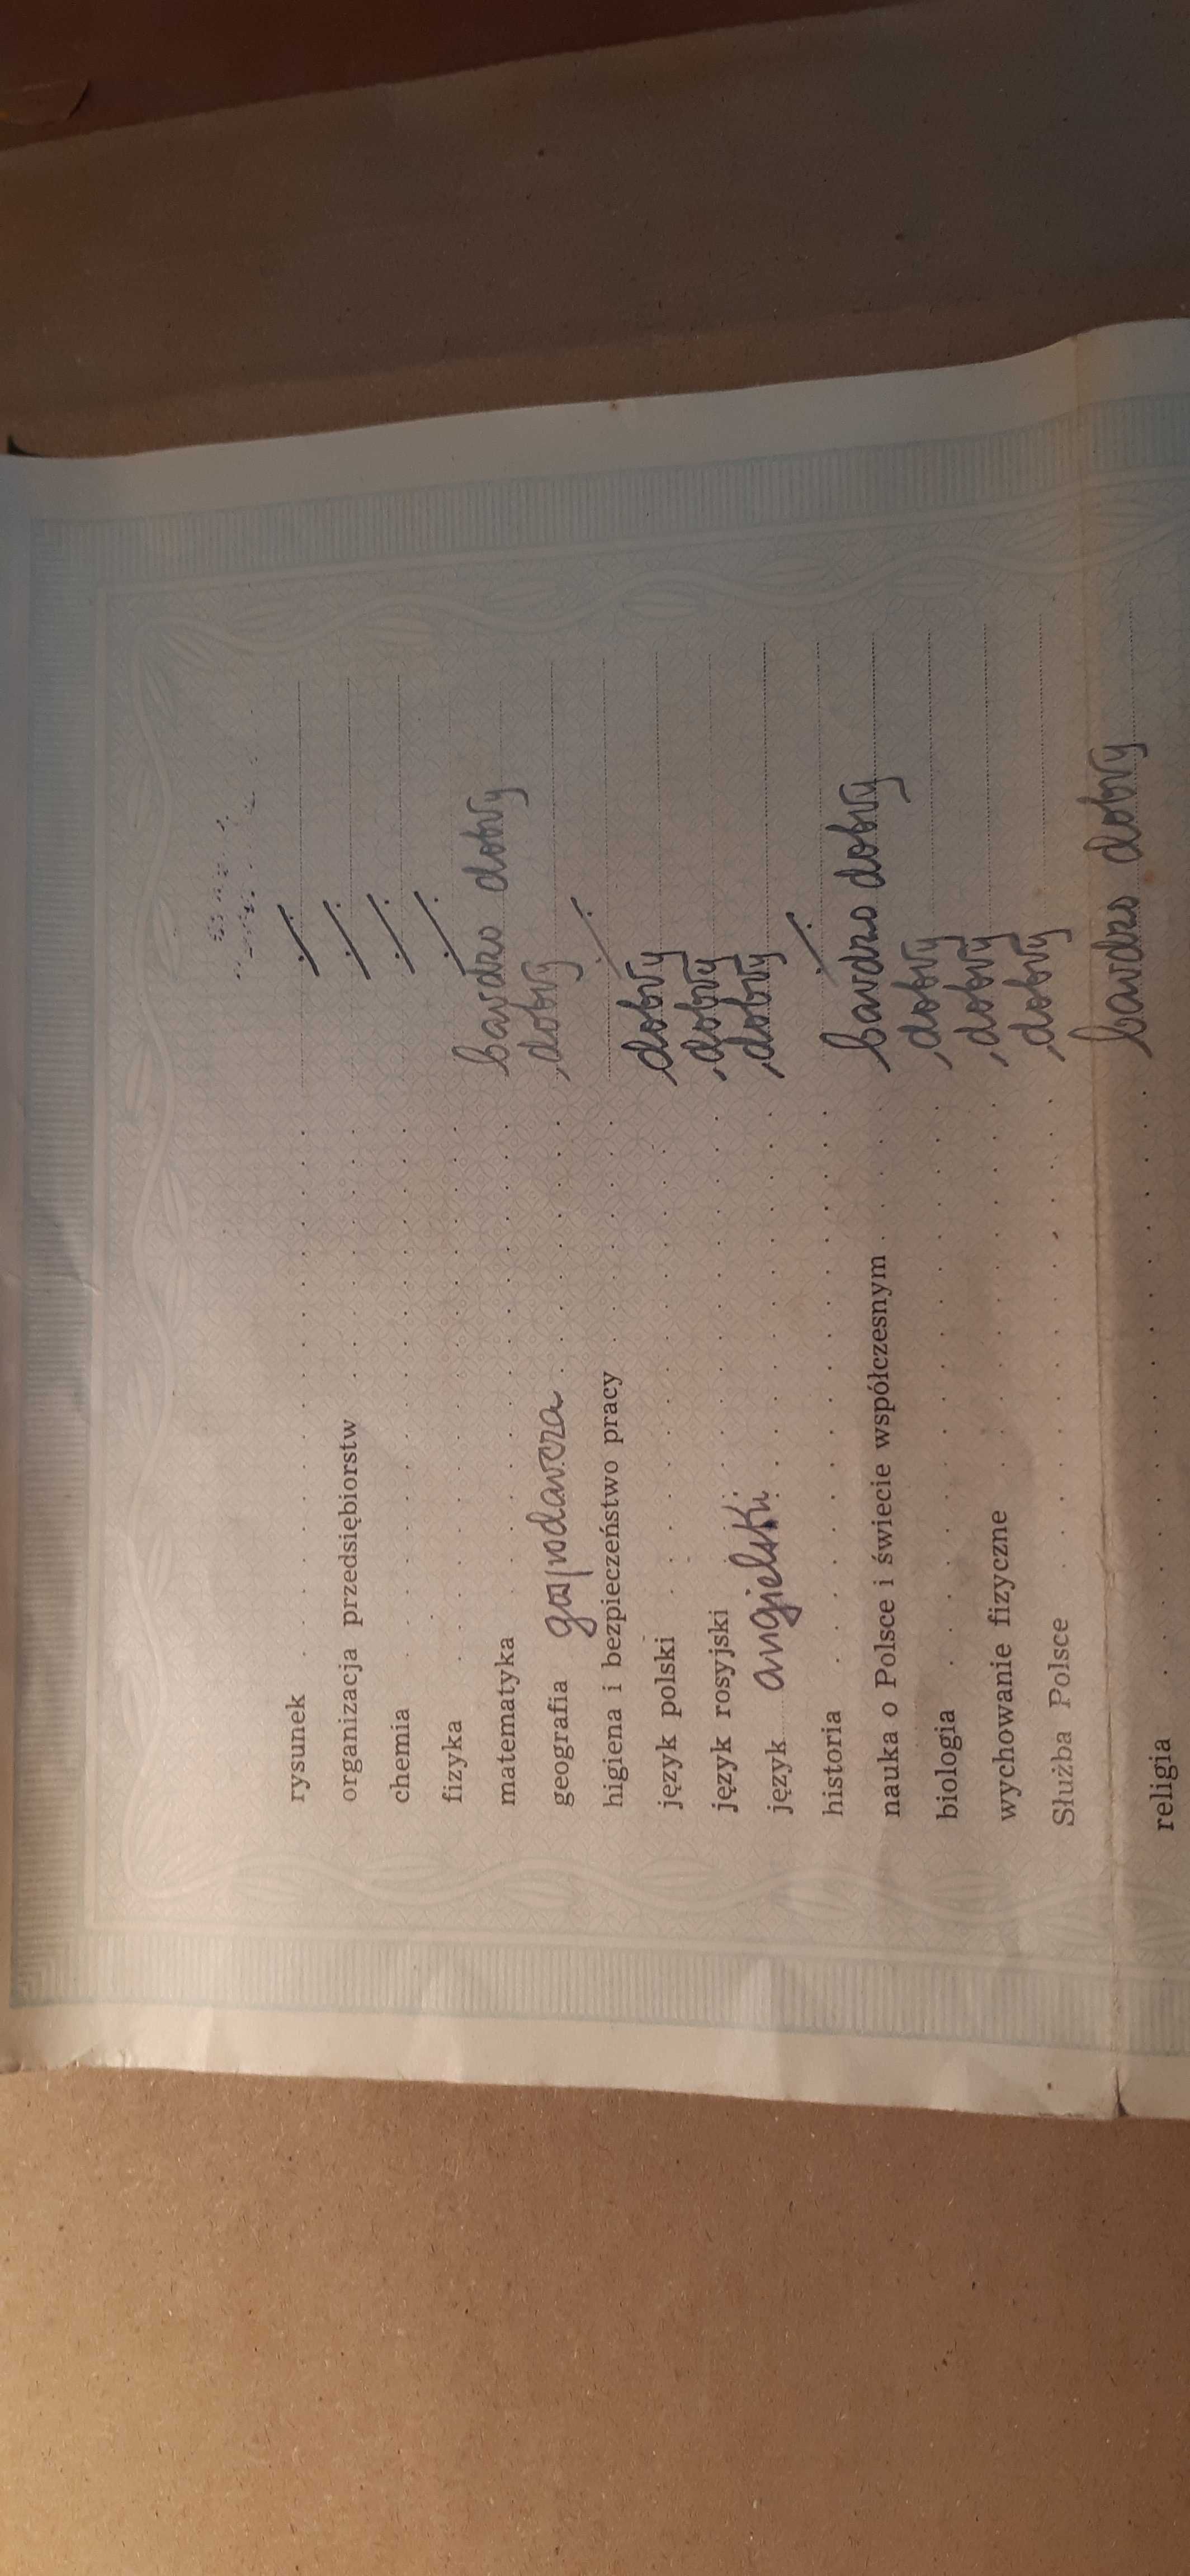 rysunek . . . . . . . ./.
organizacja przedsiębiorstw . . . ./.
chemia . . . . . . . ./.
fizyka . . . . . . . ./.
matematyka . . . . . . bardzo dobry
geografia gospodarcza . . . dobry
higiena i bezpieczeństwo pracy . . . ./.
język polski . . . . . . dobry
język rosyjski . . . . . . dobry
język angielski . . . . . dobry
historia . . . . . . . ./.
nauka o Polsce i świecie współczesnym . . . bardzo dobry
biologia . . . . . . . dobry
wychowanie fizyczne . . . . . dobry
Służba Polsce . . . . . . dobry
religia . . . . . . . bardzo dobry